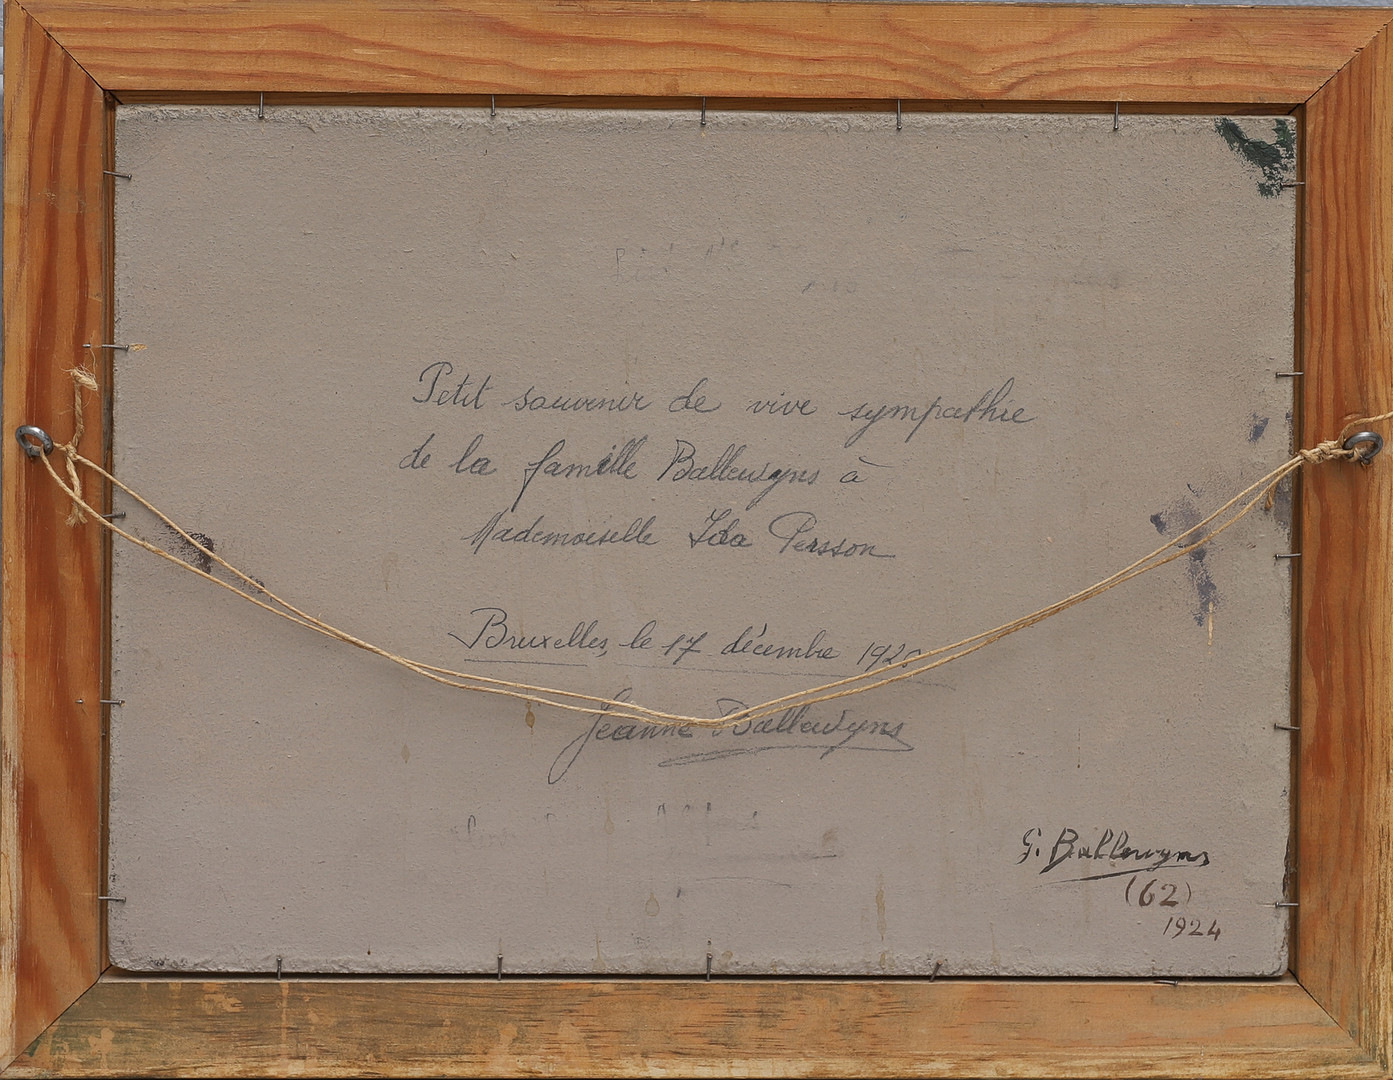 Petit souvenir de vive sympathie
de la famille Ballewyns à
Mademoiselle Ida Persson
Bruxelles, le 17 décembre
Jeanne Ballewyns
G. Ballewyns
(62)
1924